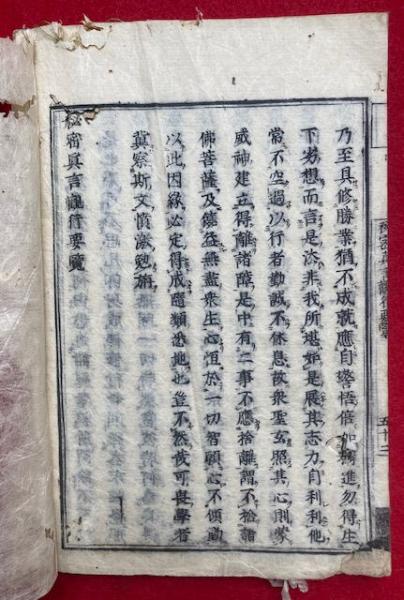 乃至具修勝業猶不成就應自警悟倍加精進勿得生
下劣想而言是法非我所堪如是展其志力自利利他
常不空過以行者勤誠不休息故衆聖玄照其心則蒙
威神建立得離諸障是中有二事不應捨離謂不捨諸
佛菩薩及饒益無盡衆生心恒於一切智願心不傾動
以此因緣必定得成隨類悉地也豈不然哉可畏學者
冀察斯文憤激勉旃
秘密眞言觀行要覽
五十三